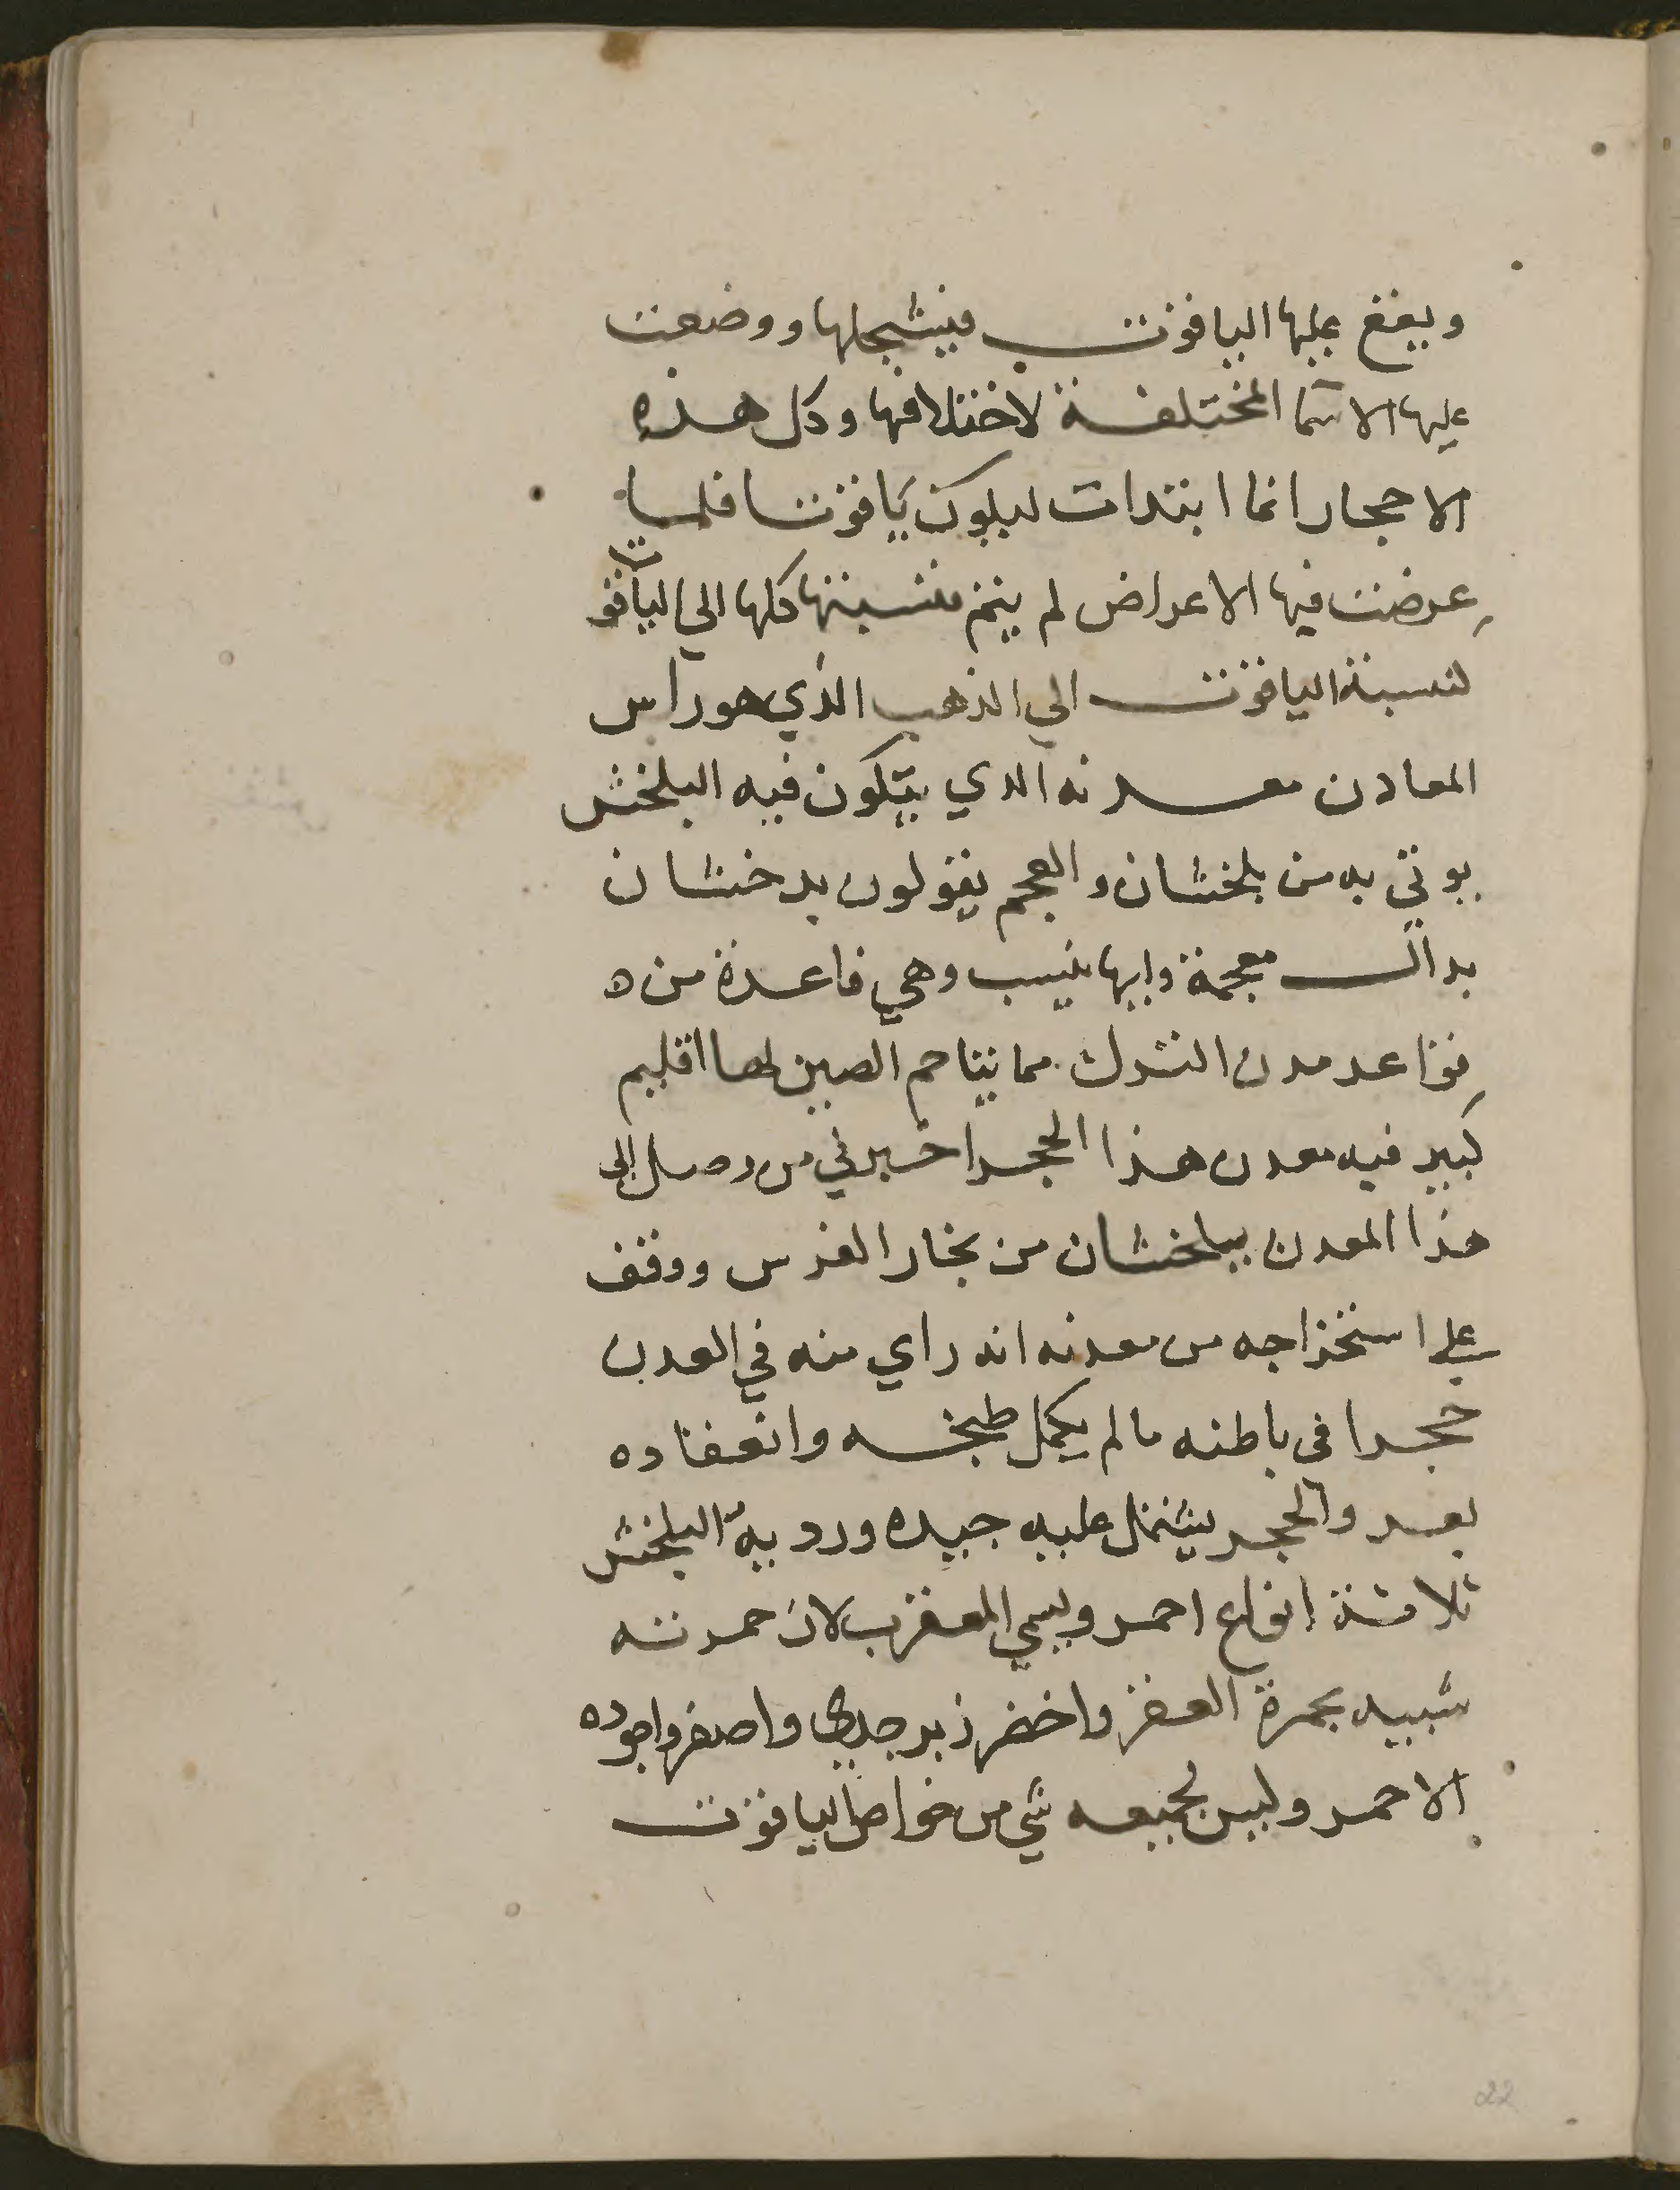 ويقع عليها الياقوت فيشملها ووضعت
عليها الاسما المختلفة لاختلافها وكل هذه
الاحجار انما ابتدات ليكون ياقوتا فلما
عرضت فيها الاعراض لم يتم فنسبتها كلها الي الياقوت
كنسبة الياقوت الي الذهب الذي هو راس
المعادن معدنه الذي يتكون فيه البلخش
يوتي به من بلخشان والعجم يقولون بدخشان
بدال معجمة واليها ينسب وهي قاعدة من ه
قواعد مدن الترك مما يتاحم الصين لها اقليم
كبير فيه معدن هذا الحجر اخبرني من وصل الى
هذا المعدن ببلخشان من تجار الفرس ووقف
على استخراجه من معدنه انه راي منه في المعدن
حجرا في باطنه ما لم يكمل طبخه وانعقاده
بعد والحجر يشتمل عليه جيده ورديه البلخش
ثلاثة انواع احمر ويسمي المعقرب لان حمرته
شبيه بحمرة العقرب واخضر زبرجدي واصفر واجوده
الاحمر وليس لجميعه شي من خواص الياقوت
22